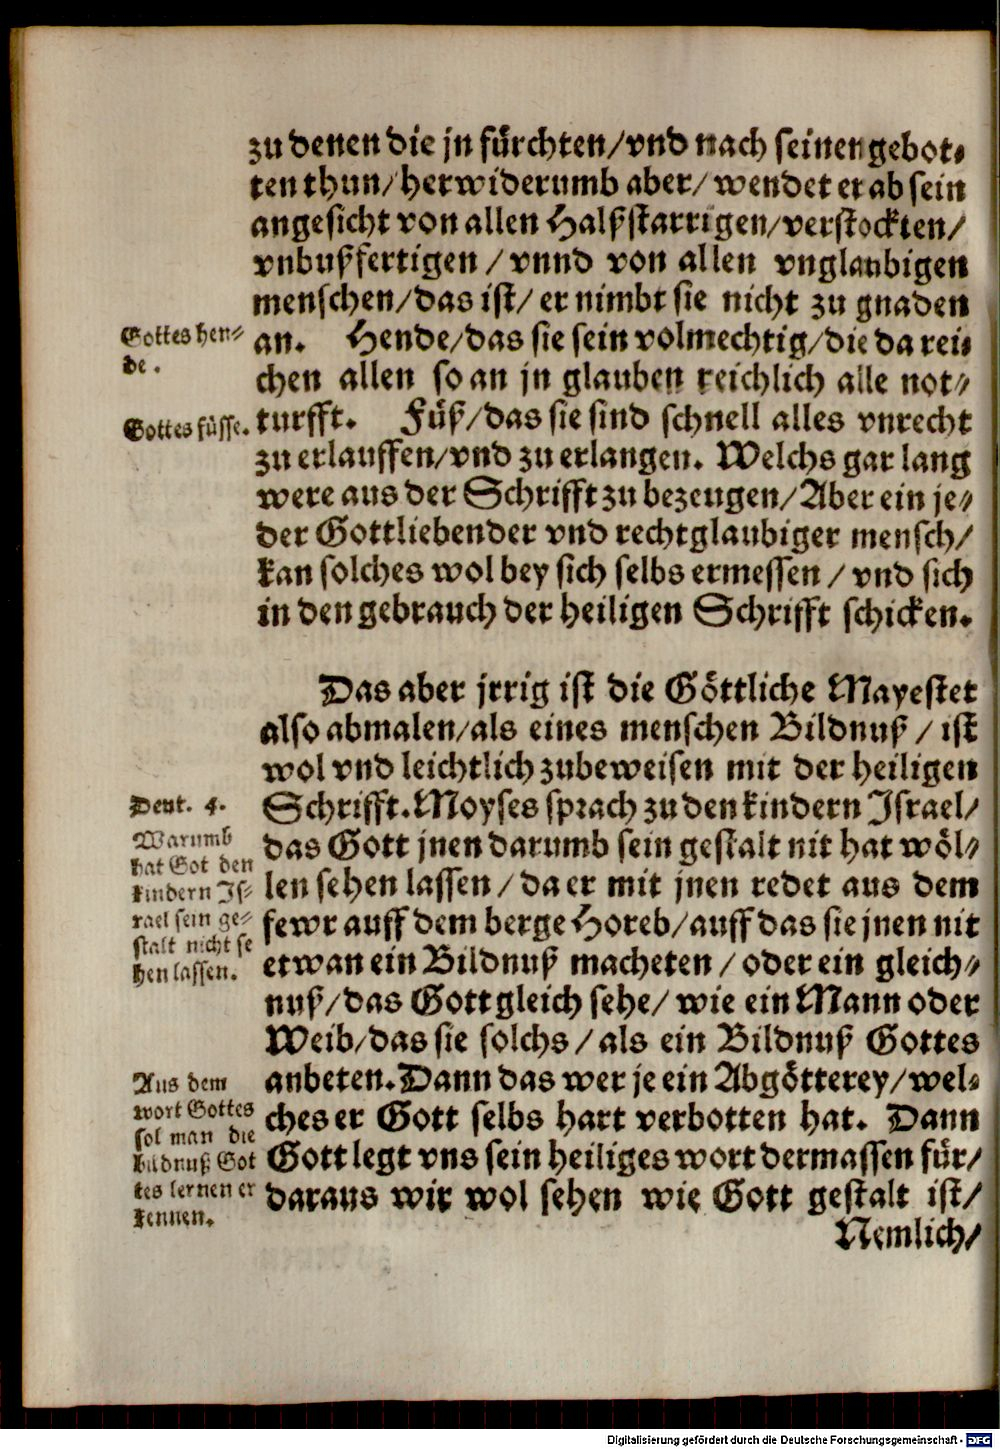 zu denen die jn fürchten/vnd nach seinen gebot⸗
ten thun/herwiderumb aber/wendet er ab sein
angesicht von allen Halßstarrigen/verstockten/
vnbußfertigen/vnnd von allen vnglaubigen
menschen/das ist/er nimbt sie nicht zu gnaden
Gottes hen⸗
de.
an. Hende/das sie sein volmechtig/die da rei⸗
chen allen so an jn glauben reichlich alle not⸗
Gottes füsse.
turfft. Füß/das sie sind schnell alles vnrecht
zu erlauffen/vnd zu erlangen. Welchs gar lang
were aus der Schrifft zu bezeugen/Aber ein je⸗
der Gottliebender vnd rechtglaubiger mensch/
kan solches wol bey sich selbs ermessen/vnd sich
in den gebrauch der heiligen Schrifft schicken.
Das aber jrrig ist die Göttliche Mayestet
also abmalen/als eines menschen Bildnuß/ist
wol vnd leichtlich zubeweisen mit der heiligen
Deut. 4.
Warumb
hat Got den
kindern Is⸗
rael sein ge⸗
stalt nicht se
hen lassen.
Schrifft. Moyses sprach zu den kindern Israel/
das Gott jnen darumb sein gestalt nit hat wöl⸗
len sehen lassen/da er mit jnen redet aus dem
fewr auff dem berge Horeb/auff das sie jnen nit
etwan ein Bildnuß macheten/oder ein gleich⸗
nuß/das Gott gleich sehe/wie ein Mann oder
Weib/das sie solchs/als ein Bildnuß Gottes
Aus dem
wort Gottes
sol man die
bildnuß Got
tes lernen er
kennen.
anbeten. Dann das wer je ein Abgötterey/wel⸗
ches er Gott selbs hart verbotten hat. Dann
Gott legt vns sein heiliges wort dermassen für/
daraus wir wol sehen wie Gott gestalt ist/
Nemlich/
Digitalisierung gefördert durch die Deutsche Forschungsgemeinschaft - DFG